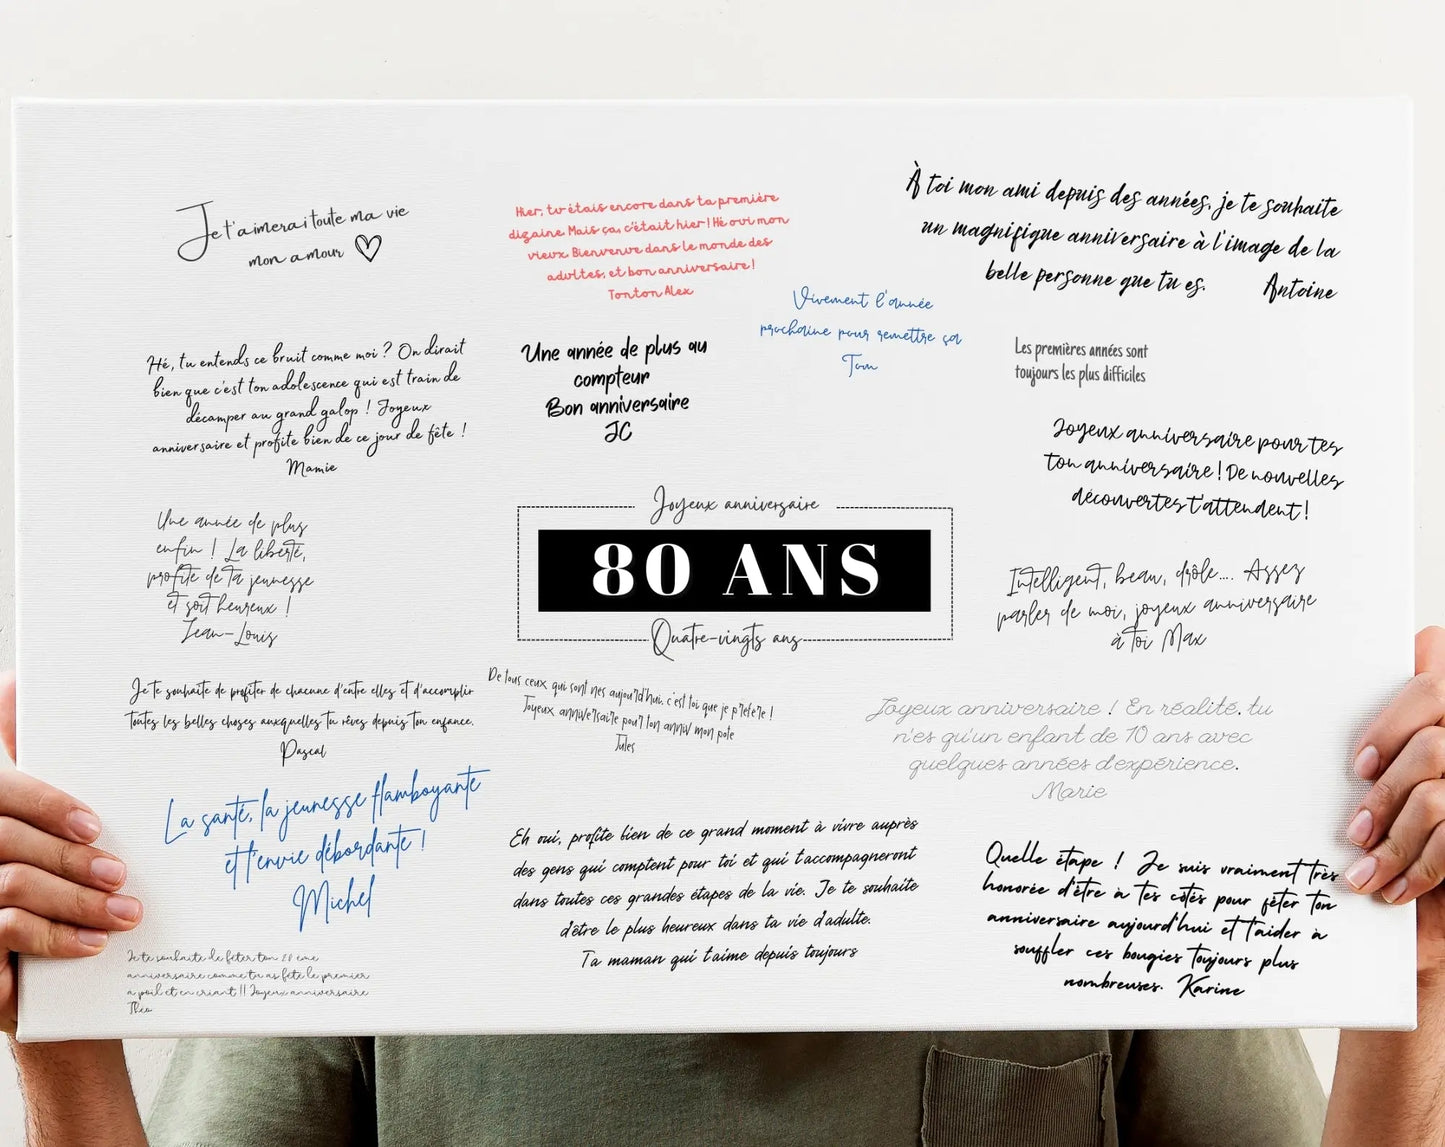 Je t'aimerai toute ma vie
mon amour
Hier, tu étais encore dans ta première
dizaine. Mais ça, c'était hier ! Hé oui mon
vieux. Bienvenue dans le monde des
adultes, et bon anniversaire !
Tonton Alex
À toi mon ami depuis des années, je te souhaite
un magnifique anniversaire à l'image de la
belle personne que tu es. Antoine
Vivement l'année
prochaine pour remettre ça
Tom
Hé, tu entends ce bruit comme moi ? On dirait
bien que c'est ton adolescence qui est train de
décamper au grand galop ! Joyeux
anniversaire et profite bien de ce jour de fête !
Mamie
Une année de plus au
compteur
Bon anniversaire
JC
Les premières années sont
toujours les plus difficiles
Joyeux anniversaire pour tes
ton anniversaire ! De nouvelles
découvertes t'attendent !
Une année de plus
enfin ! La liberté,
profite de ta jeunesse
et soit heureux !
Jean-Louis
Joyeux anniversaire
80 ANS
Quatre-vingts ans
Intelligent, beau, drôle.... Assez
parler de moi, joyeux anniversaire
à toi Max
Je te souhaite de profiter de chacune d'entre elles et d'accomplir
toutes les belles choses auxquelles tu rêves depuis ton enfance.
Pascal
De tous ceux qui sont nes aujourd'hui, c'est toi que je préfère !
Joyeux anniversaire pour ton anniv mon pote
Jules
Joyeux anniversaire ! En réalité, tu
n'es qu'un enfant de 10 ans avec
quelques années d'expérience.
Marie
La santé, la jeunesse flamboyante
et l'envie débordante !
Michel
Eh oui, profite bien de ce grand moment à vivre auprès
des gens qui comptent pour toi et qui t'accompagneront
dans toutes ces grandes étapes de la vie. Je te souhaite
d'être le plus heureux dans ta vie d'adulte.
Ta maman qui t'aime depuis toujours
Quelle étape ! Je suis vraiment très
honorée d'être à tes côtés pour fêter ton
anniversaire aujourd'hui et t'aider à
souffler ces bougies toujours plus
nombreuses. Karine
Je te souhaite de fêter ton 20 ème
anniversaire comme tu as fêté le premier
a poil et en criant !! Joyeux anniversaire
Théo